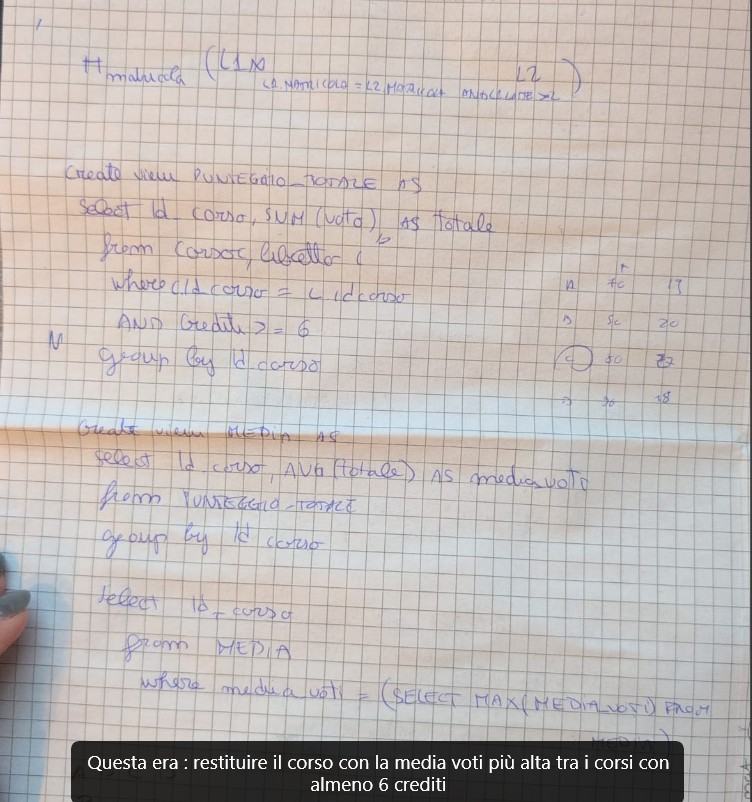 π matricola (L1 ⋈ L2)
L1.MATRICOLA = L2.MATRICOLA
Create view PUNTEGGIO_TOTALE AS
Select Id_corso, SUM (voto) AS Totale
from Corso C, libretto L
where C.Id corso = L.id corso
AND Crediti >= 6
group by Id_corso
A 17
B 20
C 50
D 18
Create view MEDIA AS
select Id_corso, AVG (totale) AS media_voti
from PUNTEGGIO_TOTALE
group by Id corso
select Id_corso
from MEDIA
where media_voti = (SELECT MAX(MEDIA_VOTI) FROM
MEDIA)
Questa era : restituire il corso con la media voti più alta tra i corsi con
almeno 6 crediti